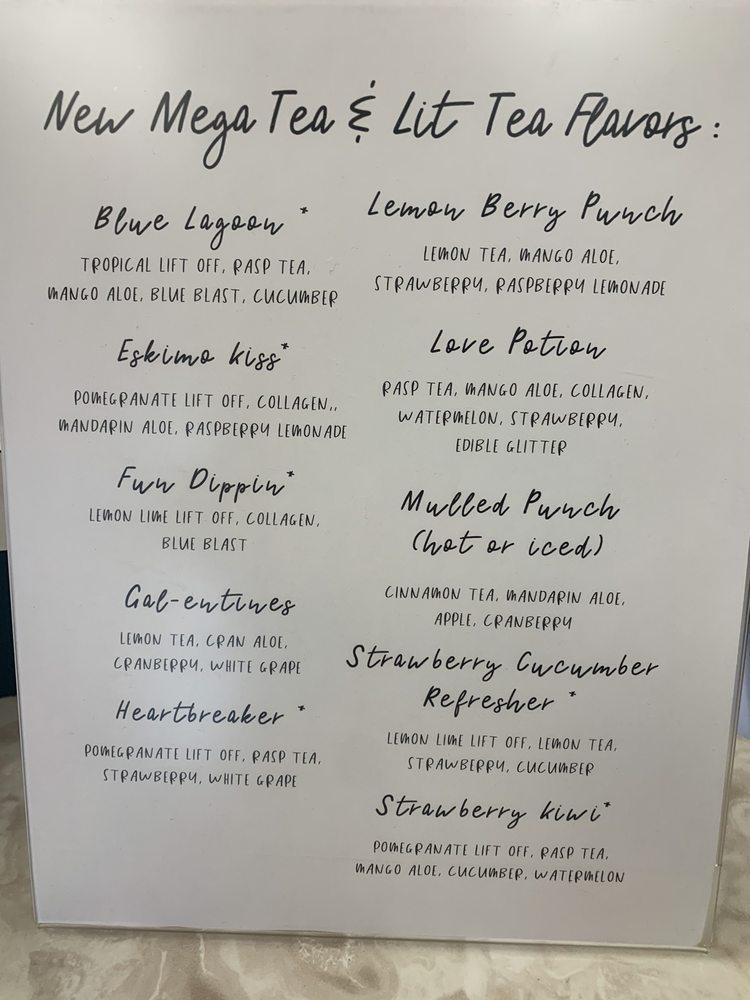 New Mega Tea & Lit Tea Flavors :
Blue Lagoon *
TROPICAL LIFT OFF, RASP TEA,
MANGO ALOE, BLUE BLAST, CUCUMBER
Eskimo kiss*
POMEGRANATE LIFT OFF, COLLAGEN,,
MANDARIN ALOE, RASPBERRY LEMONADE
Fun Dippin*
LEMON LIME LIFT OFF, COLLAGEN,
BLUE BLAST
Gal-entines
LEMON TEA, CRAN ALOE,
CRANBERRY, WHITE GRAPE
Heartbreaker *
POMEGRANATE LIFT OFF, RASP TEA,
STRAWBERRY, WHITE GRAPE
Lemon Berry Punch
LEMON TEA, MANGO ALOE,
STRAWBERRY, RASPBERRY LEMONADE
Love Potion
RASP TEA, MANGO ALOE, COLLAGEN,
WATERMELON, STRAWBERRY,
EDIBLE GLITTER
Mulled Punch
(hot or iced)
CINNAMON TEA, MANDARIN ALOE,
APPLE, CRANBERRY
Strawberry Cucumber
Refresher *
LEMON LIME LIFT OFF, LEMON TEA,
STRAWBERRY, CUCUMBER
Strawberry kiwi*
POMEGRANATE LIFT OFF, RASP TEA,
MANGO ALOE, CUCUMBER, WATERMELON